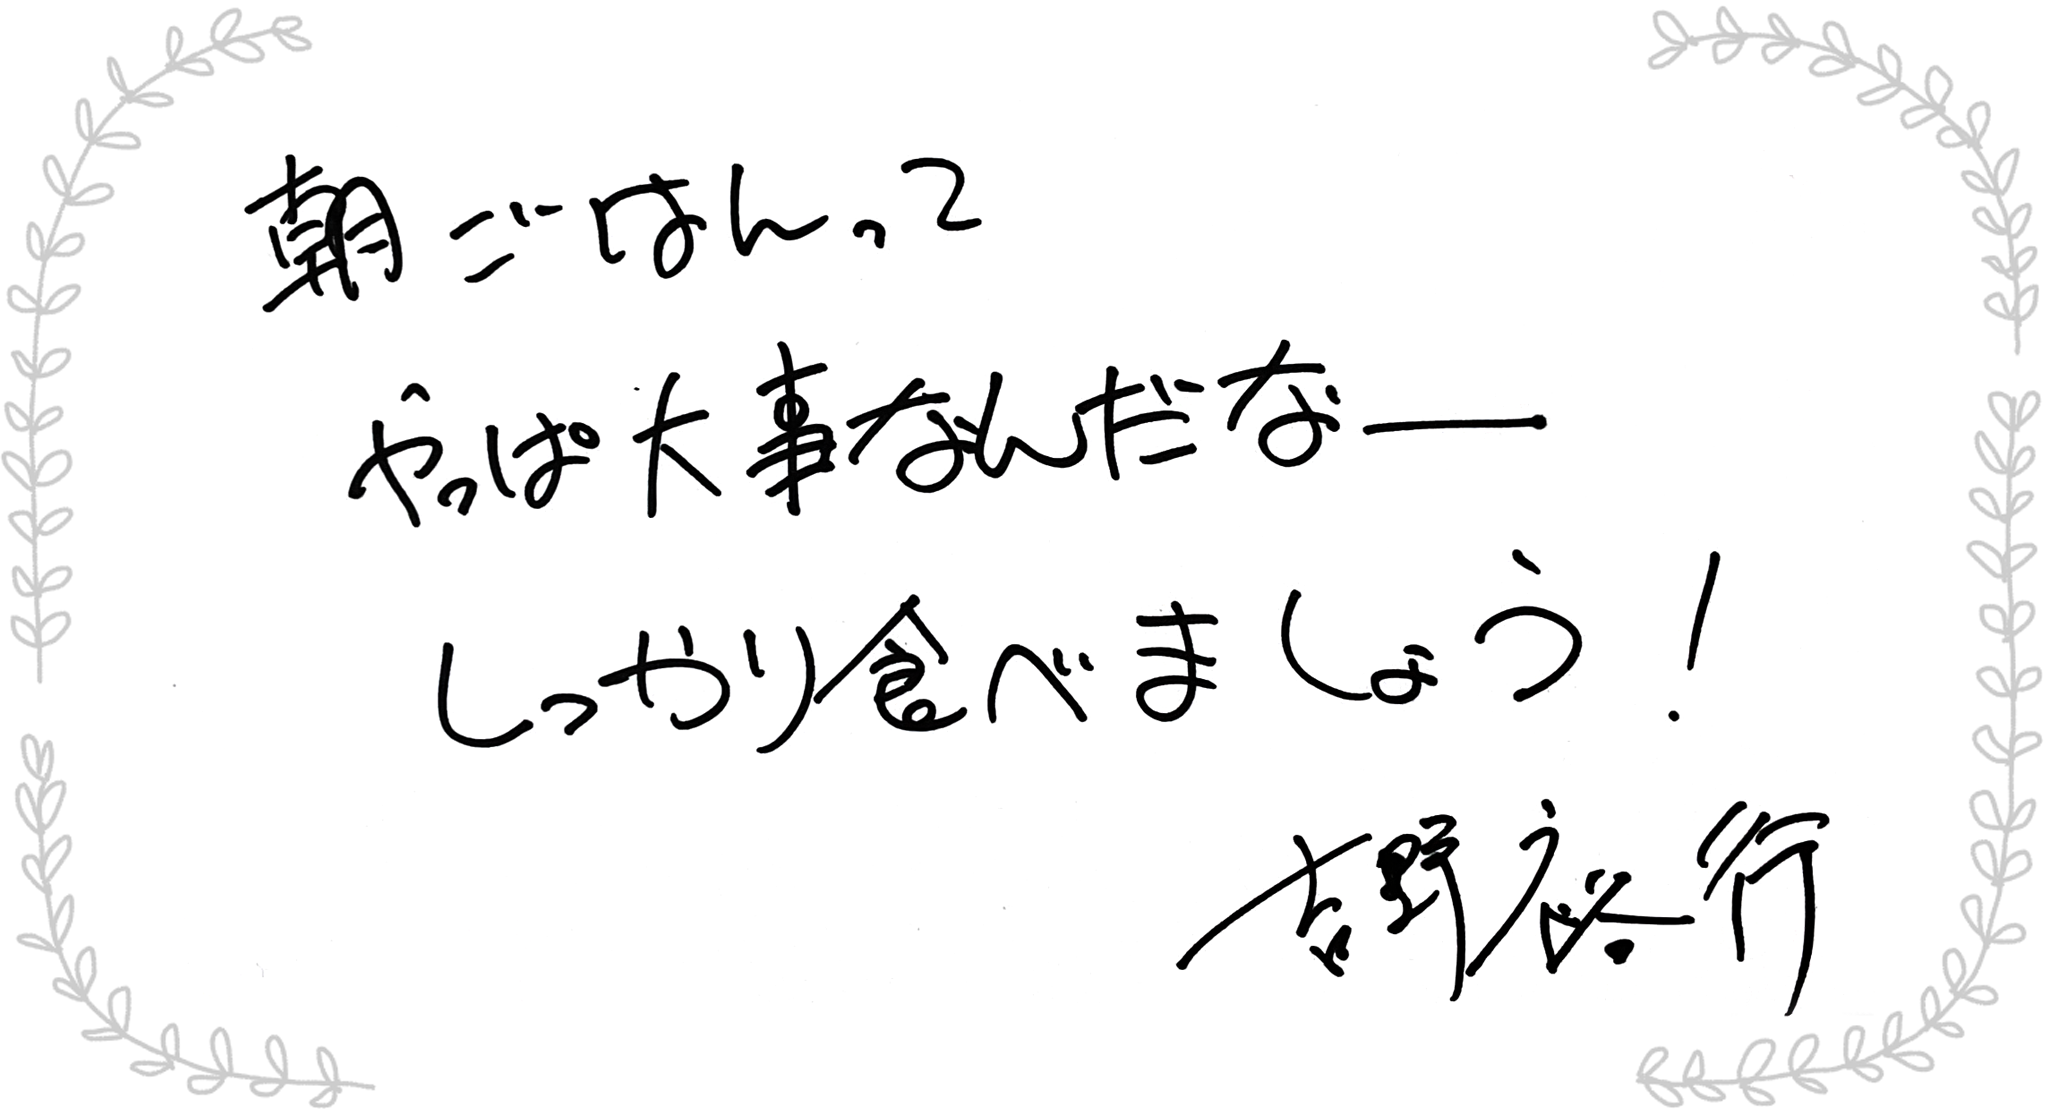 朝ごはんって
やっぱ大事なんだなー
しっかり食べましょう!
吉野啓行